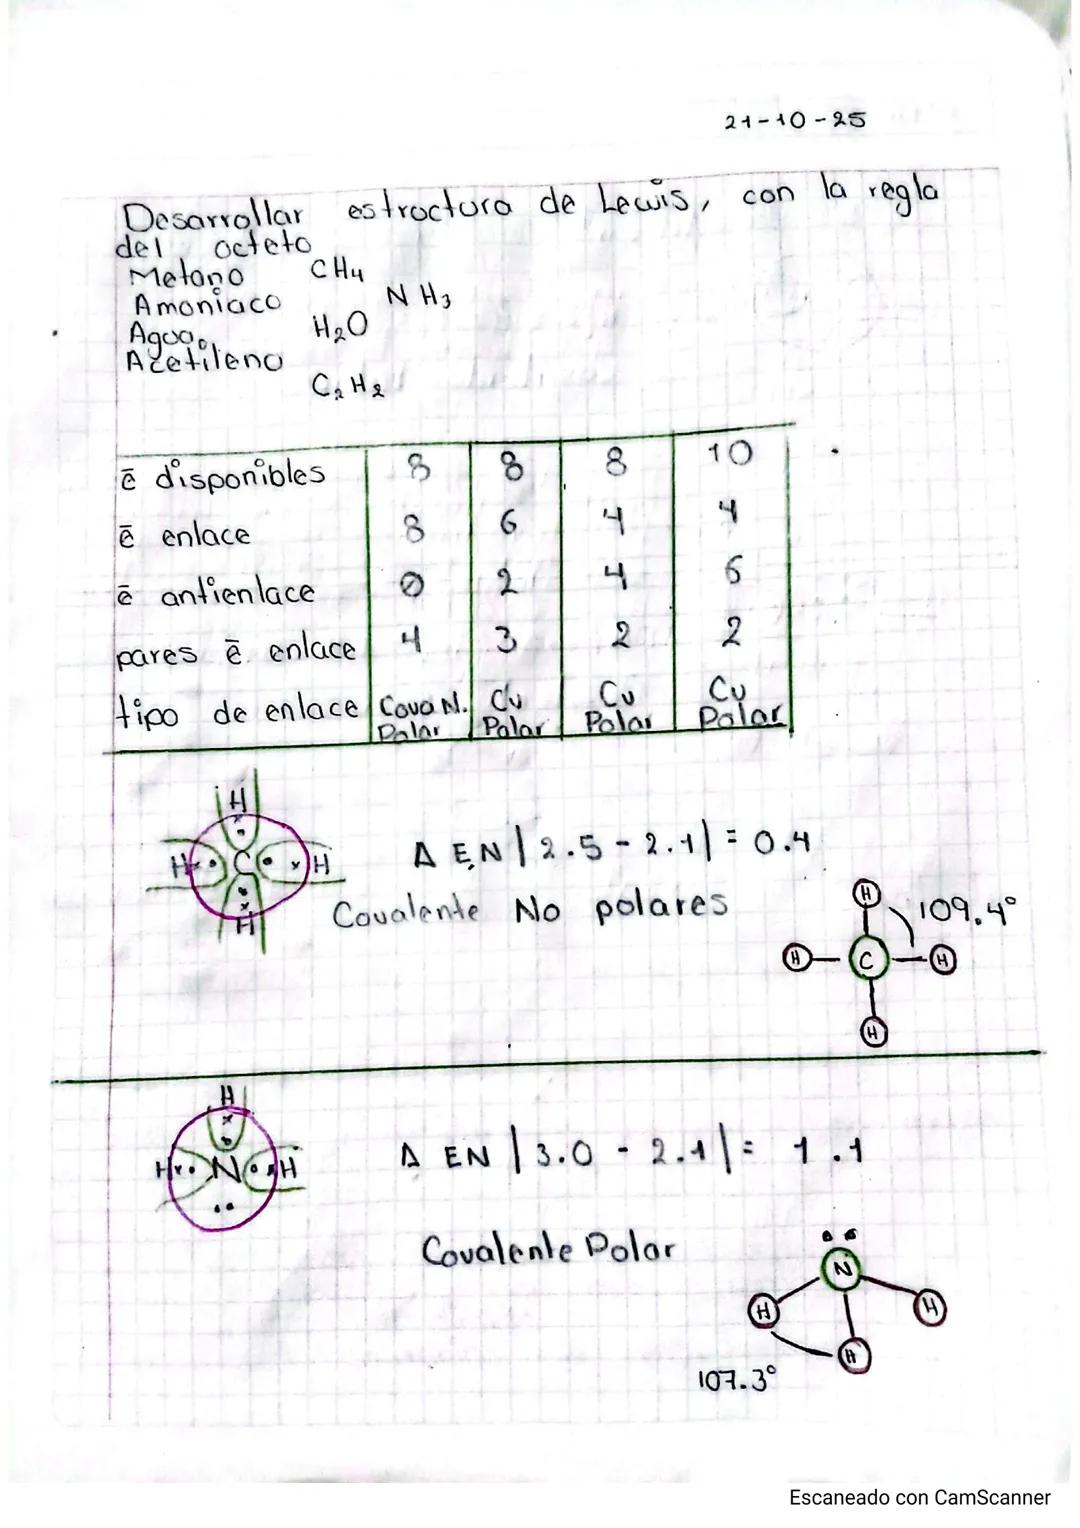 21-10-25
Desarrollar estructura de Lewis, con la regla
del octeto
Metano CH4
Amoniaco NH3
Agua H2O
Acetileno
C2H2
ē disponibles 8 8 8 10
ē enlace 8 6 4 4
ē antienlace 0 2 4 6
pares ē enlace 4 3 2 2
tipo de enlace Cova N. Polar Cv Polar Cv Polar Cv Polar
H
H C H
H
Δ EN | 2.5 - 2.1| = 0.4
Covalente No polares
H
109.4°
H C H
H
H
H N H
Δ EN | 3.0 - 2.1| = 1.1
Covalente Polar
N
H H
H
107.3°
Escaneado con CamScanner